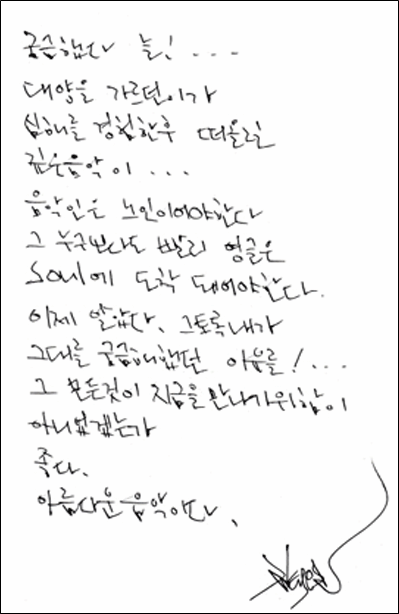 궁금했다 늘! ...
대양을 가르던이가
심해를 경험한후 떠올릴
깊은음악이 ...
음악인은 노인이어야한다
그 누구보다도 빨리 영글은
Soul에 도착 돼어야한다.
이제 알았다. 그토록내가
그대를 궁금해했던 이유를! ...
그 모든것이 지금을 만나기위함이
아니었겠는가
좋다.
아름다운음악이다.